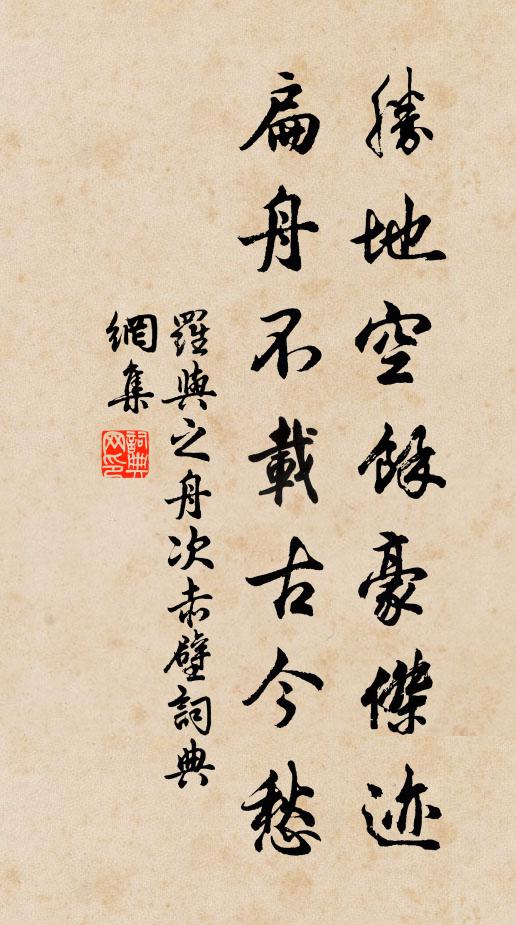 勝地空餘豪傑迹
扁舟不載古今愁
羅與之舟次赤壁詞典
網集
詞典
网印